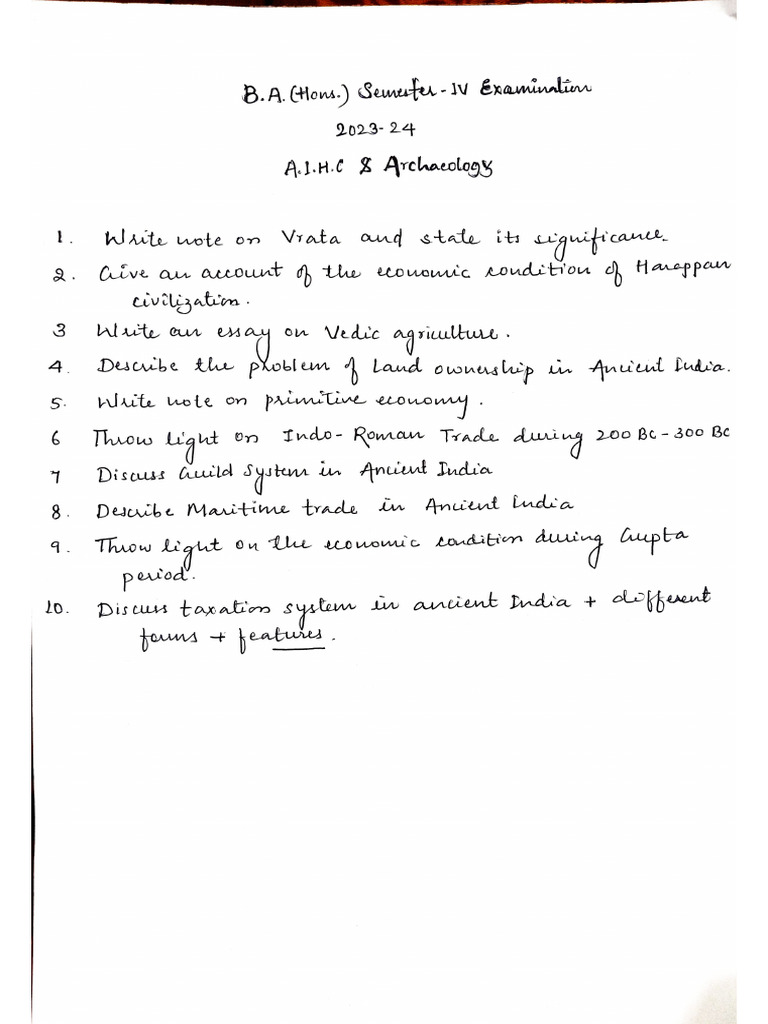 B.A. (Hons.) Semester - IV Examination
2023-24
A.I.H.C & Archaeology
1. Write note on Vrata and state its significance.
2. Give an account of the economic condition of Harappan
civilization.
3 Write an essay on Vedic agriculture.
4. Describe the problem of Land ownership in Ancient India.
5. Write note on primitive economy.
6 Throw light on Indo-Roman Trade during 200 BC - 300 BC
7 Discuss Guild System in Ancient India
8. Describe Maritime trade in Ancient India
9. Throw light on the economic condition during Gupta
period.
10. Discuss taxation system in ancient India + different
forms + features.